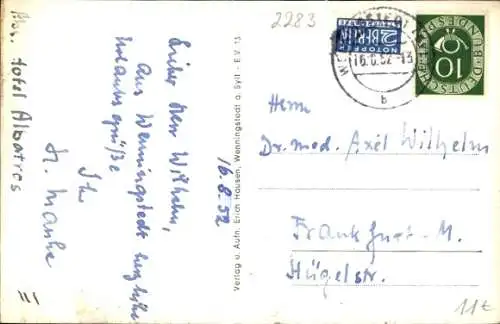 Abs. Hotel Albatros
16.8.52
Lieber Herr Wilhelm,
aus Wenningstedt herzliche
Urlaubsgrüße
Ihr
H. Manke
Verlag u. Aufn. Erich Hausen, Wenningstedt a. Sylt - E.V. 13
2283
NOTOPFER
2 BERLIN
STEUERMARKE
16.8.52-13
b
DEUTSCHE BUNDESPOST
10
Herrn
Dr. med. Axel Wilhelm
Frankfurt-M.
Hügelstr.
11€